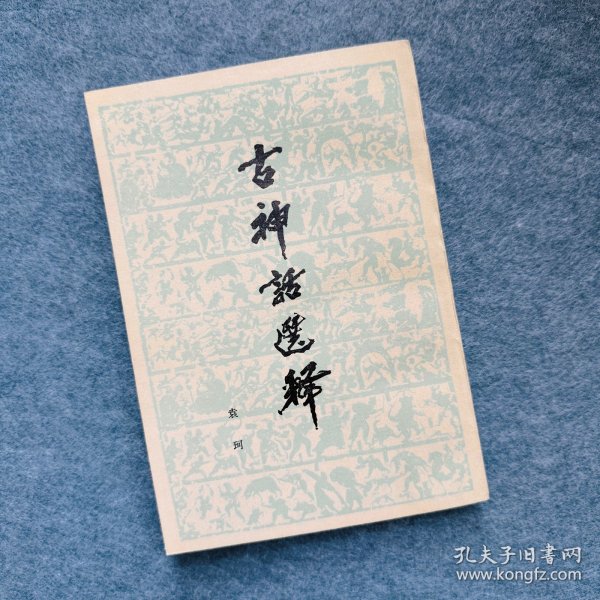 古神話選釋
袁珂
孔夫子旧書网
www.kongfz.com